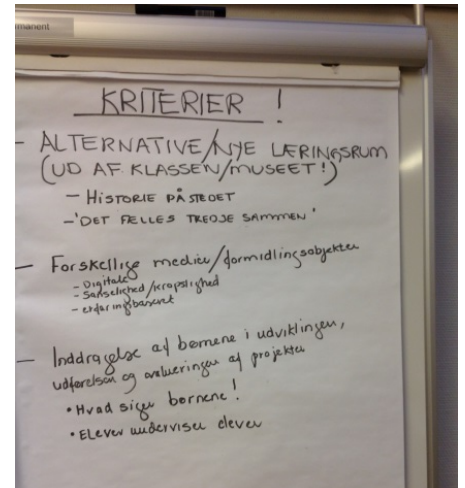 manent
KRITERIER !
- ALTERNATIVE/NYE LÆRINGSRUM
(UD AF KLASSEN/MUSEET!)
- HISTORIE PÅ STEDET
- 'DET FÆLLES TREDJE SAMMEN'
- Forskellige medier/formidlingsobjekter
- Digitale
- Sanselighed/kropslighed
- erfaringsbaseret
- Inddragelse af børnene i udviklingen,
udførelsen og evalueringen af projektet
• Hvad siger børnene!
• Elever underviser elever